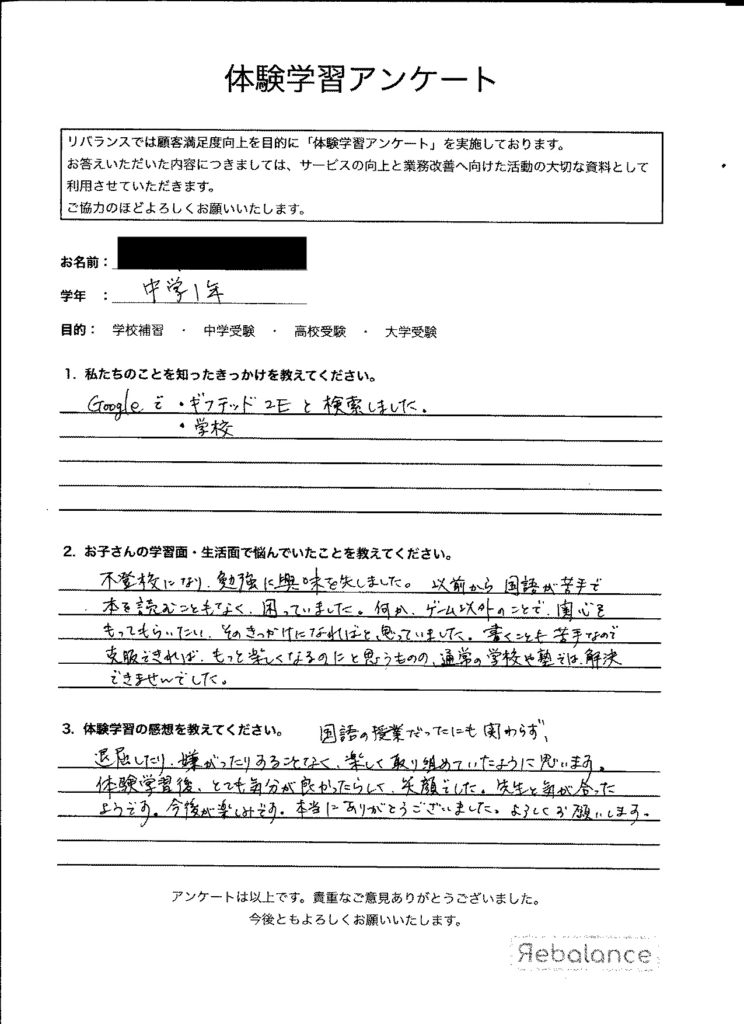 体験学習アンケート
リバランスでは顧客満足度向上を目的に「体験学習アンケート」を実施しております。
お答えいただいた内容につきましては、サービスの向上と業務改善へ向けた活動の大切な資料として
利用させていただきます。
ご協力のほどよろしくお願いいたします。
お名前：
学年　：中学1年
目的：　学校補習　・　中学受験　・　高校受験　・　大学受験
1. 私たちのことを知ったきっかけを教えてください。
Googleで・ギフテッド 2E と検索しました。
・学校
2. お子さんの学習面・生活面で悩んでいたことを教えてください。
不登校になり、勉強に興味を失しました。以前から国語が苦手で
本を読むこともなく、困っていました。何か、ゲーム以外のことで、関心を
もってもらいたい、そのきっかけになればと思っていました。書くことも苦手なので
克服できれば、もっと楽しくなるのにと思うものの、通常の学校や塾では、解決
できませんでした。
3. 体験学習の感想を教えてください。　国語の授業だったにも関わらず、
退屈したり、嫌がったりすることなく、楽しく取り組めていたように思います。
体験学習後、とても気分が良かったらしく、笑顔でした。先生と気が合った
ようです。今後が楽しみです。本当にありがとうございました。よろしくお願いします。
アンケートは以上です。貴重なご意見ありがとうございました。
今後ともよろしくお願いいたします。
Rebalance